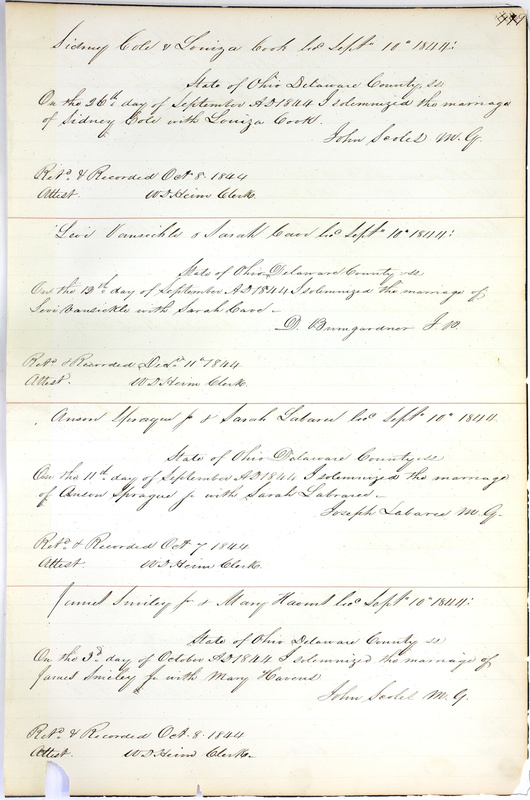 Sidney Cole & Louiza Cook lic Sept. 10th 1844:
State of Ohio Delaware County ss
On the 26th day of September AD 1844 I solemnized the marriage
of Sidney Cole with Louiza Cook.
John Scoles M.G.
Retd. & Recorded Oct 8. 1844
Attest. W D Heim Clerk.
Levi Vansickle & Sarah Cave lic Sept. 10th 1844:
State of Ohio Delaware County ss
On the 12th day of September AD 1844 I solemnized the marriage of
Levi Vansickle with Sarah Cave
D. Bumgardner J P.
Retd. & Recorded 11th 1844
Attest. W D Heim Clerk.
Anson Sprague Jr & Sarah Labaree lic Sept. 10th 1844.
State of Ohio Delaware County ss
On the 11th day of September AD 1844 I solemnized the marriage
of Anson Sprague Jr with Sarah Labaree
Joseph Labaree M.G.
Retd. & Recorded Oct 7 1844
Attest. W D Heim Clerk
James Smiley Jr & Mary lic Sept. 10th 1844:
State of Ohio Delaware County ss
On the 3d. day of October AD 1844 I solemnized the marriage of
James Smiley Jr with Mary Havens
John Scoles M.G.
Retd. & Recorded Oct. 8. 1844
Attest. W D Heim Clerk